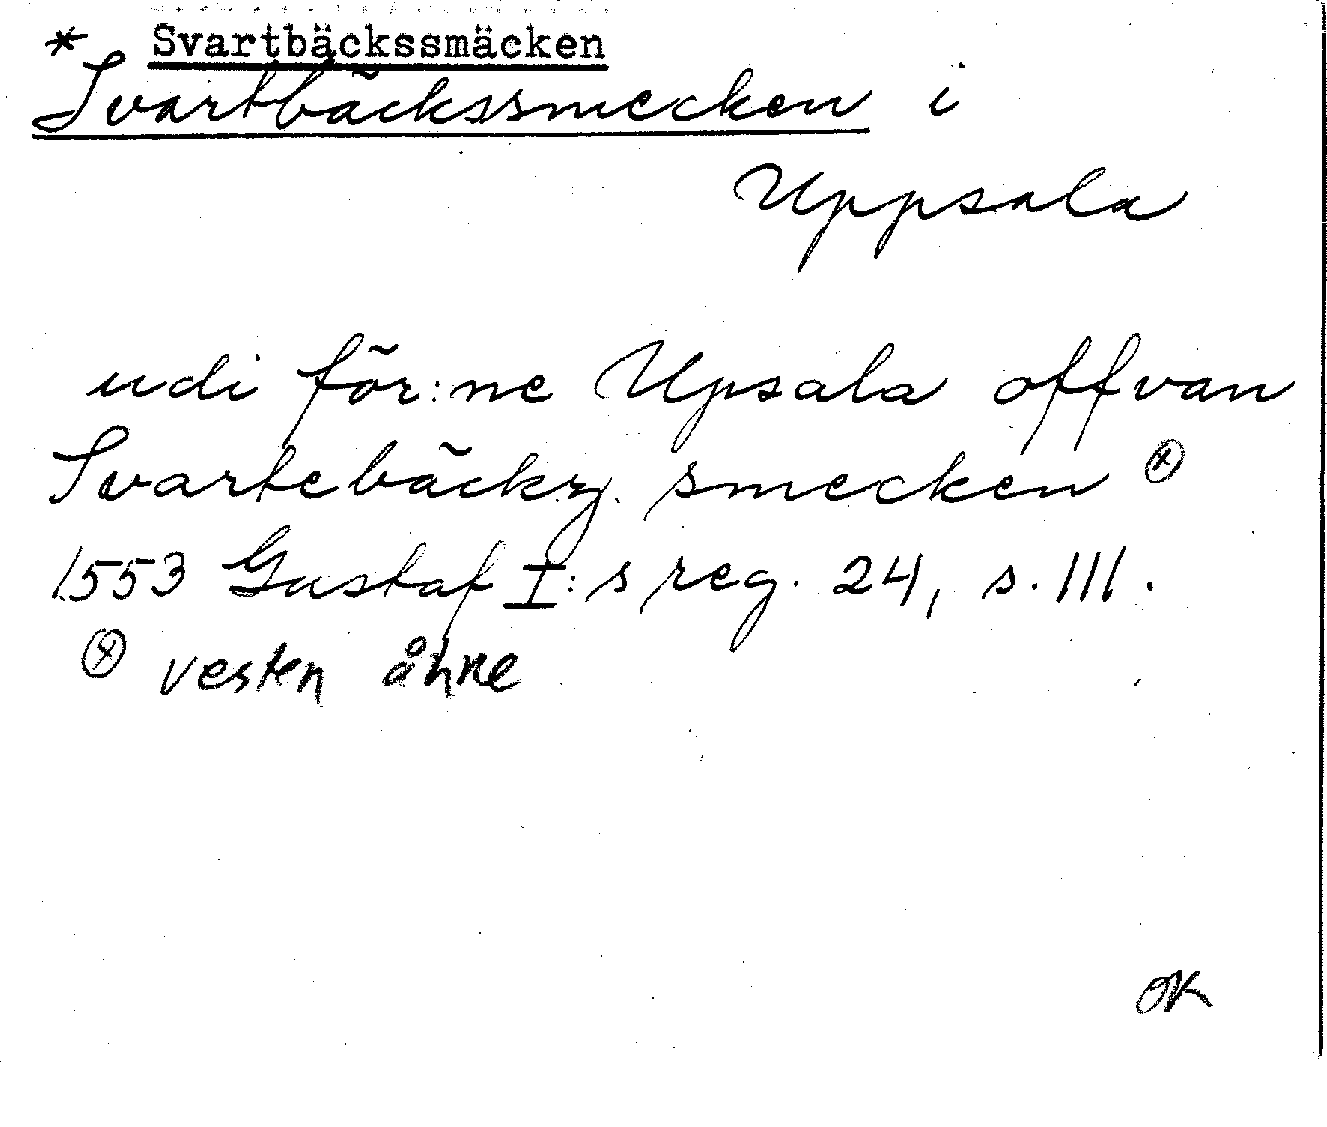 * Svartbäckssmäcken
Svartbäckssmecken i
Uppsala
udi för:ne Upsala offvan
Svartebäckz. smecken ⊗
1553 Gustaf I:s reg. 24, s. 111.
⊗ vesten åhne
OK